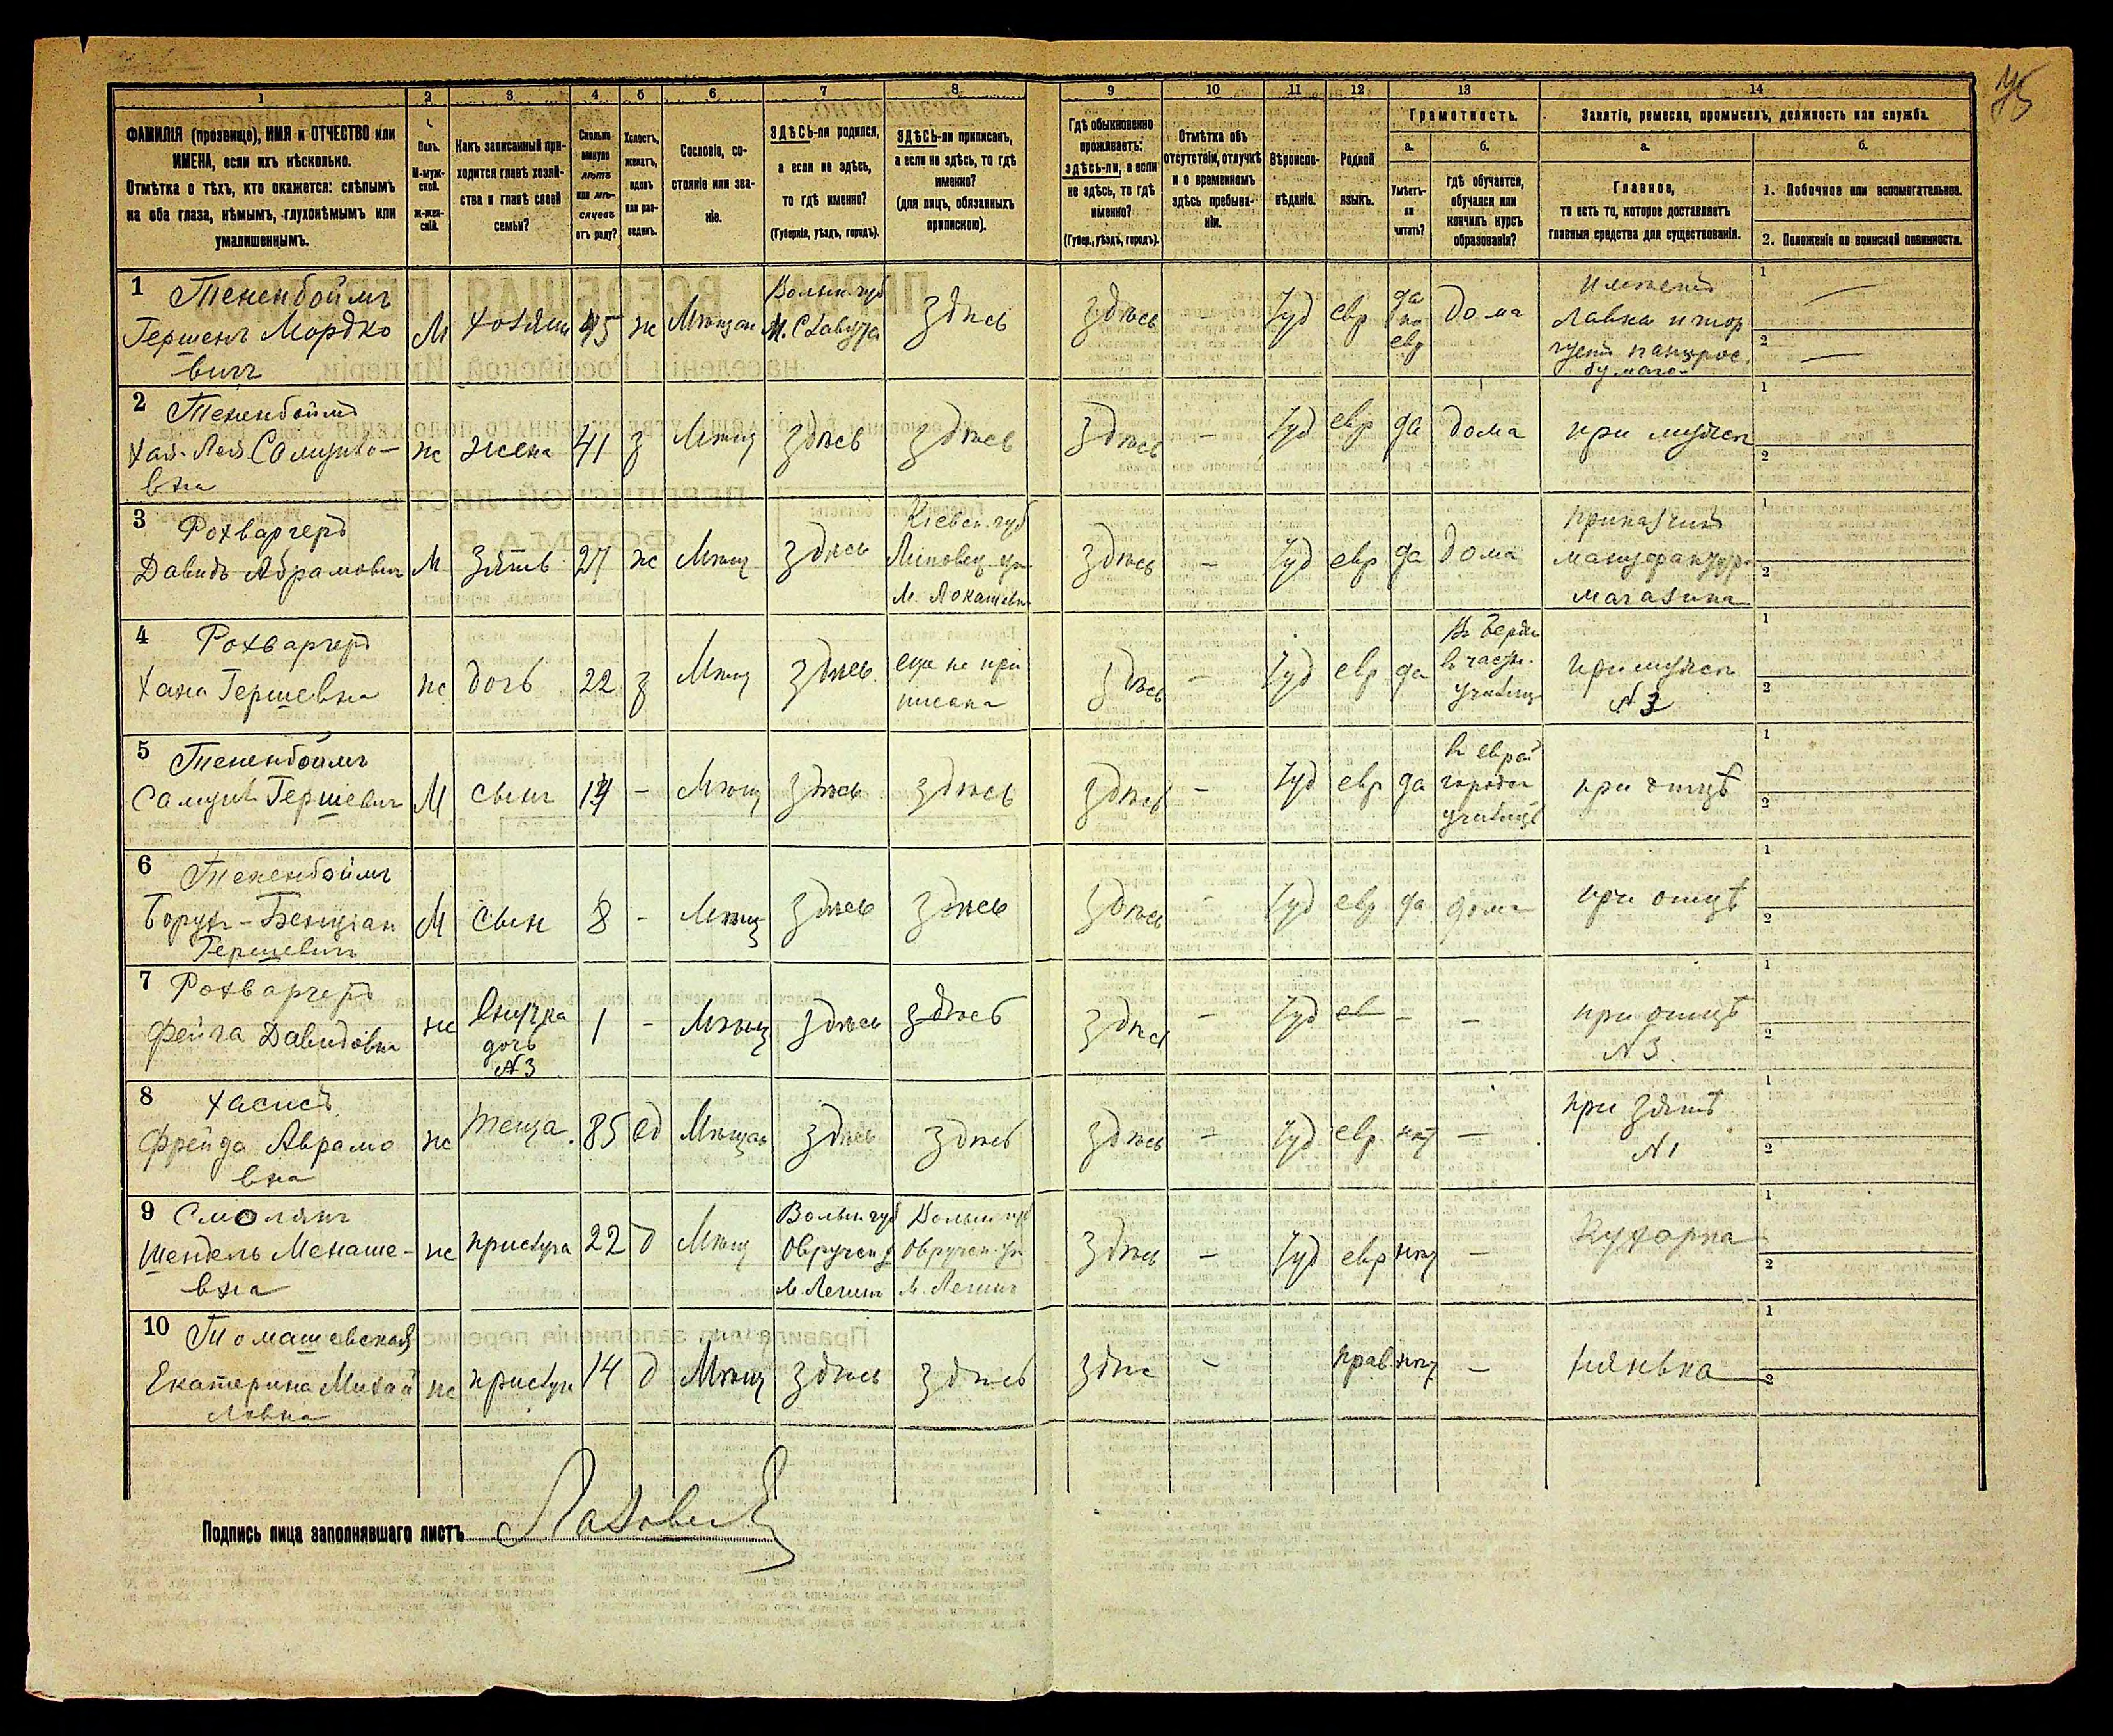 75
1 2 3 4 5 6 7 8 9 10 11 12 13 14
ФАМИЛІЯ (прозвище), ИМЯ и ОТЧЕСТВО или
ИМЕНА, если ихъ нѣсколько.
Отмѣтка о тѣхъ, кто окажется: слѣпымъ
на оба глаза, нѣмымъ, глухонѣмымъ или
умалишеннымъ.
Полъ.
М-муж-
ской.
ж-жен-
скій.
Какъ записанный при-
ходится главѣ хозяй-
ства и главѣ своей
семьи?
Сколько
минуло
лѣтъ
или мѣ-
сяцевъ
отъ роду?
Холостъ,
женатъ,
вдовъ
или раз-
веденъ.
Сословіе, со-
стояніе или зва-
ніе.
ЗДѢСЬ-ли родился,
а если не здѣсь,
то гдѣ именно?
(Губернія, уѣздъ, городъ).
ЗДѢСЬ-ли приписанъ,
а если не здѣсь, то гдѣ
именно?
(для лицъ, обязанныхъ
припискою).
Гдѣ обыкновенно
проживаетъ:
здѣсь-ли, а если
не здѣсь, то гдѣ
именно?
(Губер., уѣздъ, городъ).
Отмѣтка объ
отсутствіи, отлучкѣ
и о временномъ
здѣсь пребыва-
ніи.
Вѣроиспо-
вѣданіе.
Родной
языкъ.
Грамотность.
а.
Умѣетъ-
ли
читать?
б.
гдѣ обучается,
обучался или
кончилъ курсъ
образованія?
Занятіе, ремесло, промыселъ, должность или служба.
а.
Главное,
то есть то, которое доставляетъ
главныя средства для существованія.
б.
1. Побочное или вспомогательное.
2. Положеніе по воинской повинности.
1 Тененбоймъ
Гершенъ Мордко
вичъ
М хозяин 45 ж Мѣщан
Волын. губ
М. Славута
здѣсь здѣсь - Іуд евр
да
по
евр
дома
Имѣетъ
лавка и тор
гуетъ папирос.
бумаго-
1 —
2 —
2 Тененбоймъ
Хая-Лея Самуило-
вна
ж жена 41 з Мѣщ здѣсь здѣсь здѣсь - Іуд евр да дома при мужѣ
1
2
3 Рохваргеръ
Давидъ Абрамович
М зять 27 ж Мѣщ здѣсь
Кіевск. губ
Липовец. у
здѣсь - Іуд евр да дома
приказчикъ
мануфактур.
магазина
1
2
4 Рохваргеръ
Хана Гершевна
ж дочь 22 з Мѣщ здѣсь
еще не при
писана
здѣсь - Іуд евр да
Въ Берди
в частн.
училищ
при мужѣ
№ 3
1
2
5 Тененбоймъ
Самуил Гершевич
М сынъ 14 - Мѣщ здѣсь здѣсь здѣсь - Іуд евр да
в еврей
городск
училищѣ
при отцѣ
1
2
6 Тененбоймъ
Борух-Бенціан
Гершевичъ
М сын 8 - Мѣщ здѣсь здѣсь здѣсь - Іуд евр да дома при отцѣ
1
2
7 Рохваргеръ
Фейга Давидовна
ж
внучка
дочь
№ 3
1 - Мѣщ здѣсь здѣсь здѣсь - Іуд ев - -
при отцѣ
№ 3.
1
2
8 Хасисъ
Фрейда Аврамо
вна
ж теща. 85 вд Мѣщан здѣсь здѣсь здѣсь - Іуд евр нѣт -
при зятѣ
№ 1
1
2
9 Смолянъ
Шендель Менаше-
вна
ж прислуга 22 д Мѣщ
Волын. губ
Овручск у
м.
Волын. губ
Овручск. у
м.
здѣсь - Іуд евр нѣт - Кухарка
1
2
10 Томашевская
Екатерина Михай
ловна
ж прислуг 14 д Мѣщ здѣсь здѣсь здѣс - прав. нѣт - нянька
1
2
Подпись лица заполнявшаго листъ